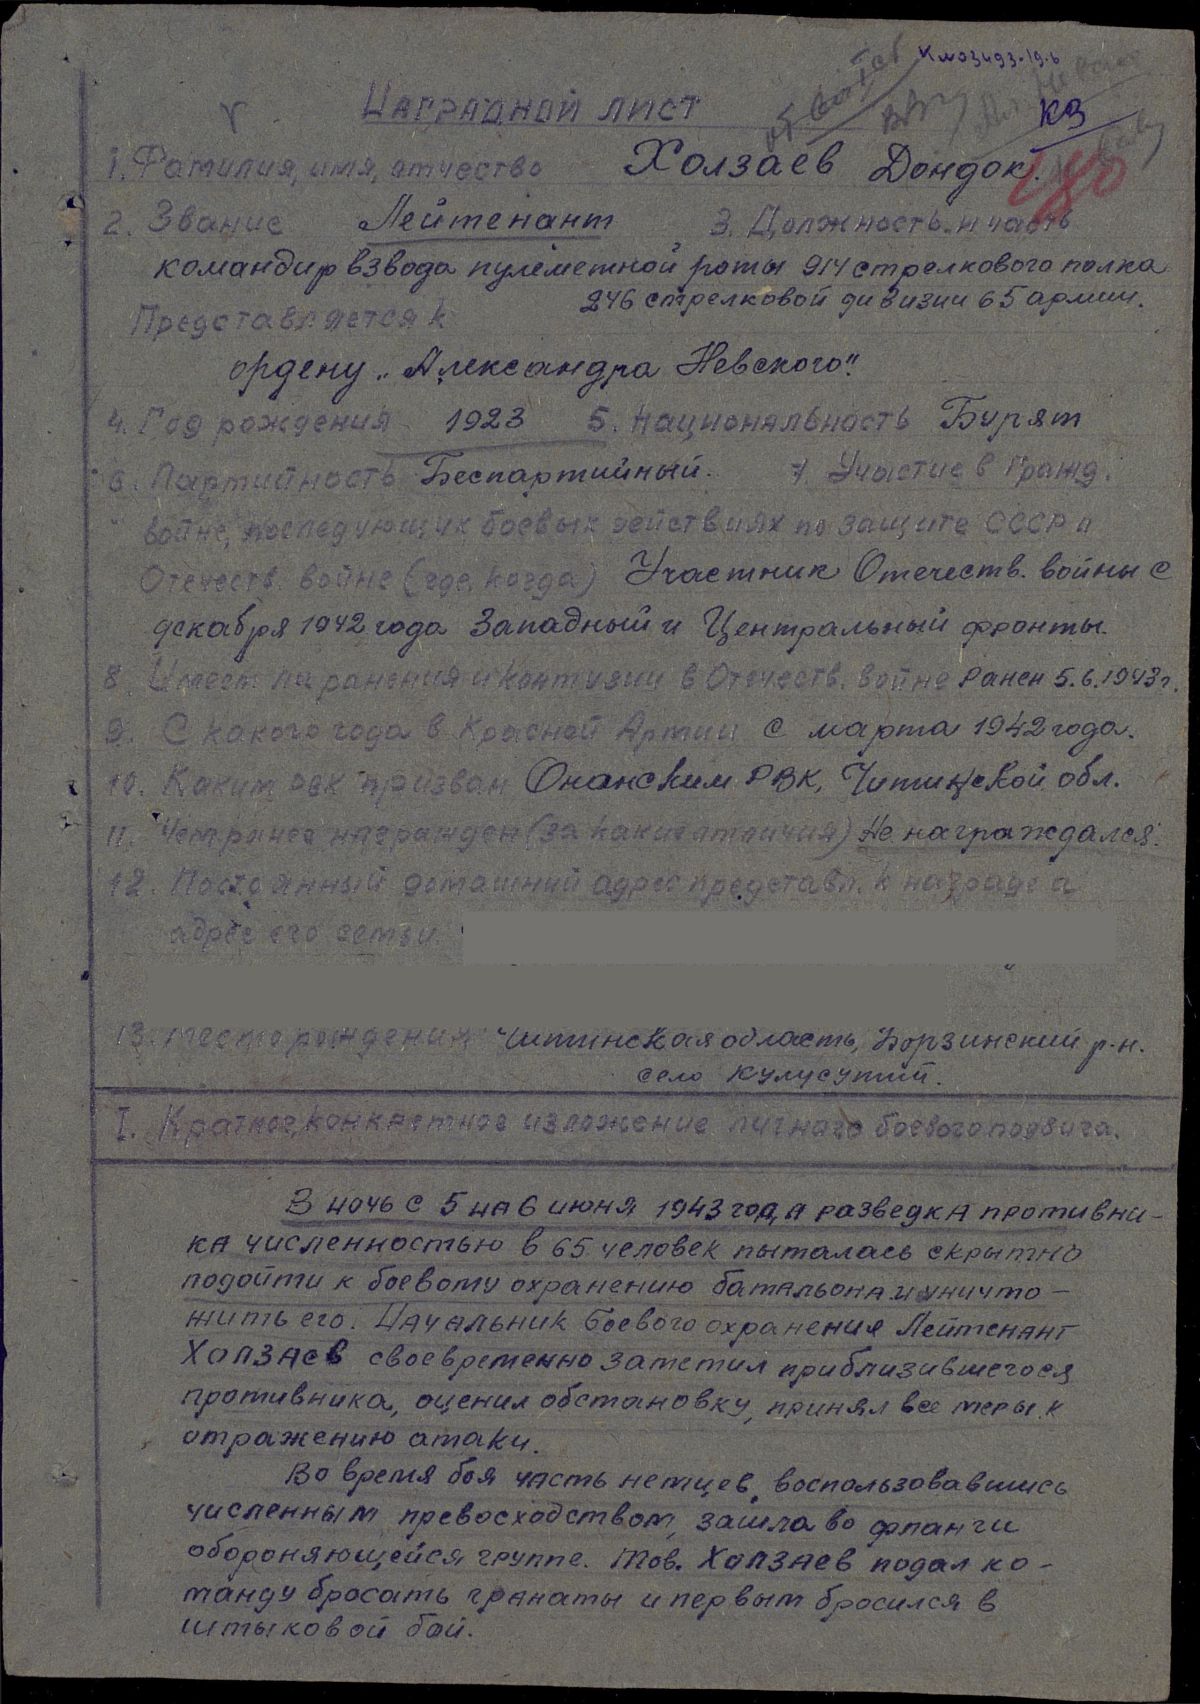 КЗ
Наградной лист
1. Фамилия, имя, отчество Холзаев Дондок.
2. Звание Лейтенант 3. Должность и часть
командир взвода пулеметной роты 914 стрелкового полка
246 стрелковой дивизии 65 армии.
Представляется к
ордену „Александра Невского".
4. Год рождения 1923 5. Национальность Бурят
6. Партийность Беспартийный. 7. Участие в гражд.
войне, последующих боевых действиях по защите СССР и
Отечеств. войне (где, когда) Участник Отечеств. войны с
декабря 1942 года Западный и Центральный фронты.
8. Имеет ли ранения и контузии в Отечеств. войне Ранен 5.6.1943 г.
9. С какого года в Красной Армии с марта 1942 года.
10. Каким РВК призван Ононским РВК, Читинской обл.
11. Чем ранее награжден (за какие отличия) Не награждался.
12. Постоянный домашний адрес представл. к награде и
адрес его семьи
13. Место рождения Читинская область, Борзинский р-н.
село Кулусутай.
I. Краткое, конкретное изложение личного боевого подвига.
В ночь с 5 на 6 июня 1943 года разведка противни-
ка численностью в 65 человек пыталась скрытно
подойти к боевому охранению батальона и уничто-
жить его. Начальник боевого охранения Лейтенант
Холзаев своевременно заметил приблизившегося
противника, оценил обстановку, принял все меры к
отражению атаки.
Во время боя часть немцев, воспользовавшись
численным превосходством, зашла во фланги
обороняющейся группе. Тов. Холзаев подал ко-
манду бросать гранаты и первым бросился в
штыковой бой.